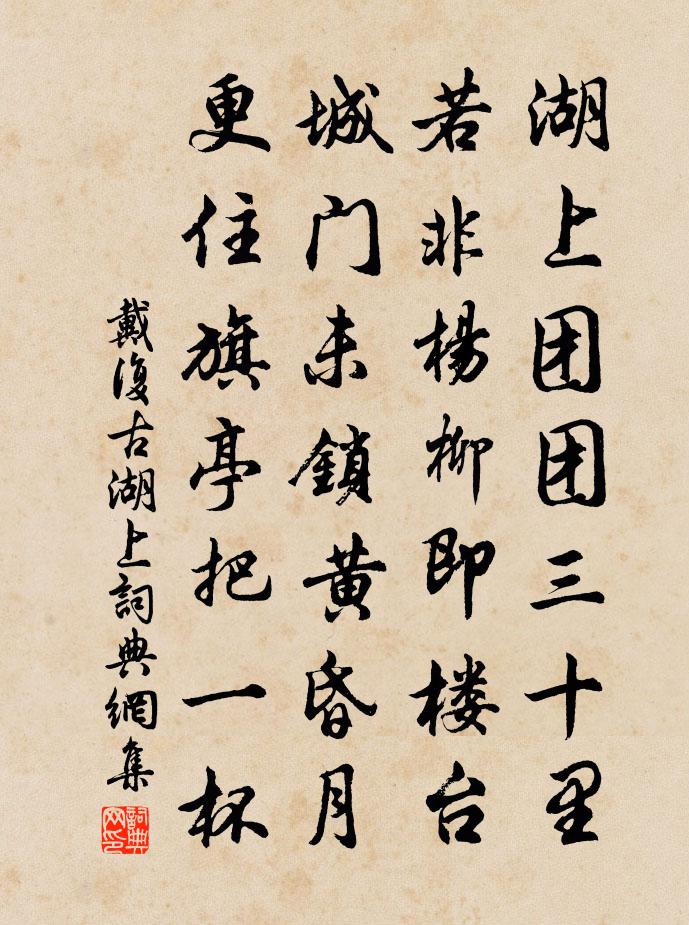 湖上团团三十里
若非楊柳即楼台
城门未鎖黄昏月
更住旗亭把一杯
戴復古湖上詞典網集
詞典网印